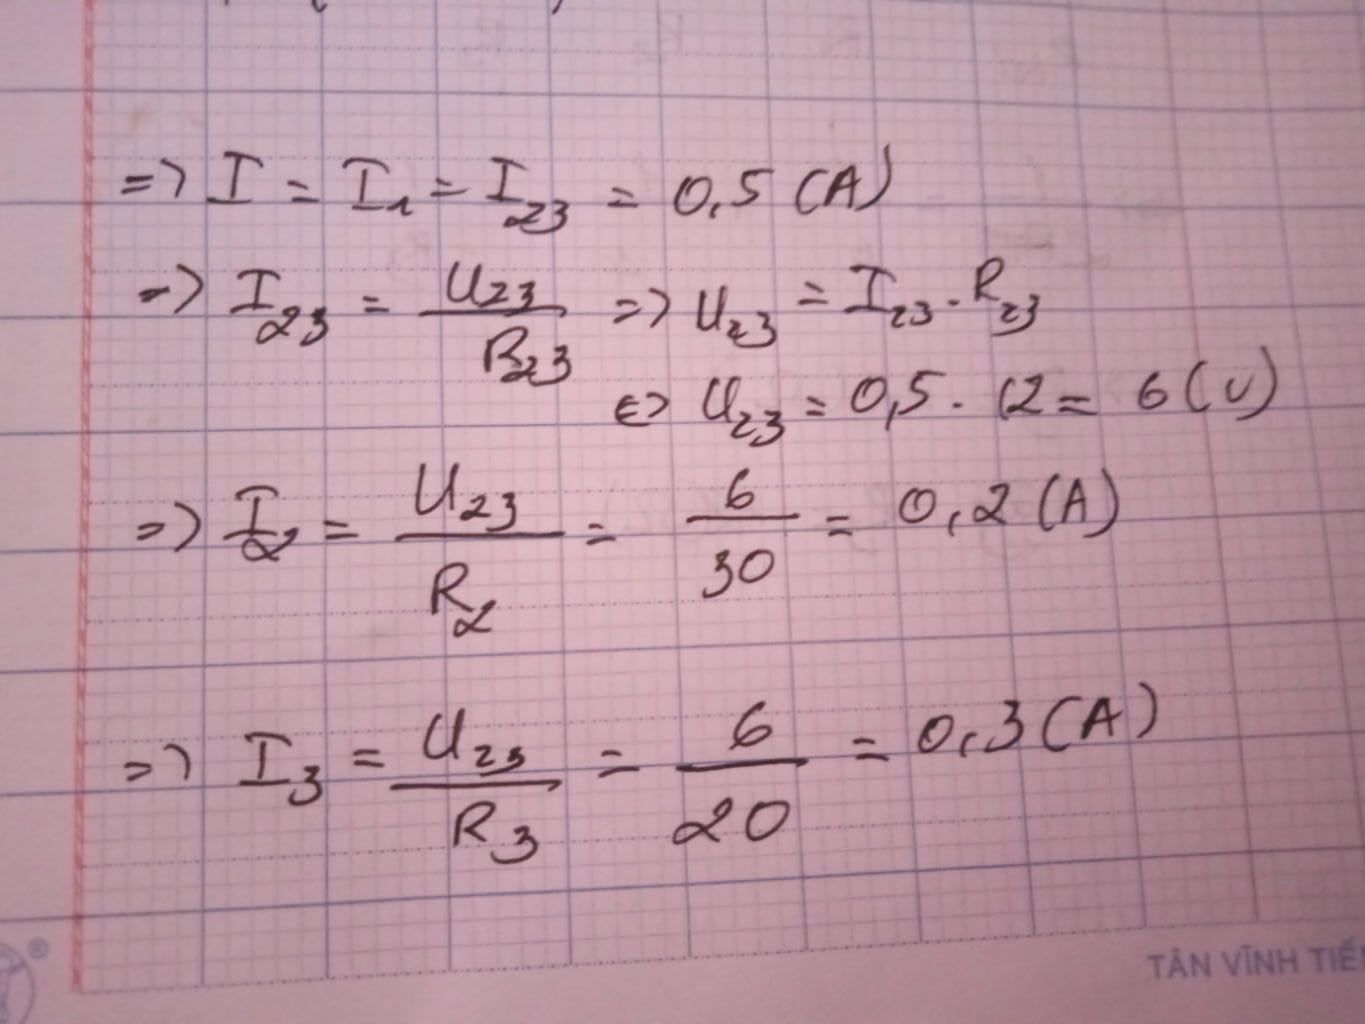 => I = I₁ = I₂₃ = 0,5 (A)
=> I₂₃ = U₂₃ / R₂₃ => U₂₃ = I₂₃ . R₂₃
<=> U₂₃ = 0,5 . 12 = 6 (V)
=> I₂ = U₂₃ / R₂ = 6 / 30 = 0,2 (A)
=> I₃ = U₂₃ / R₃ = 6 / 20 = 0,3 (A)
®
TÂN VĨNH TIẾ